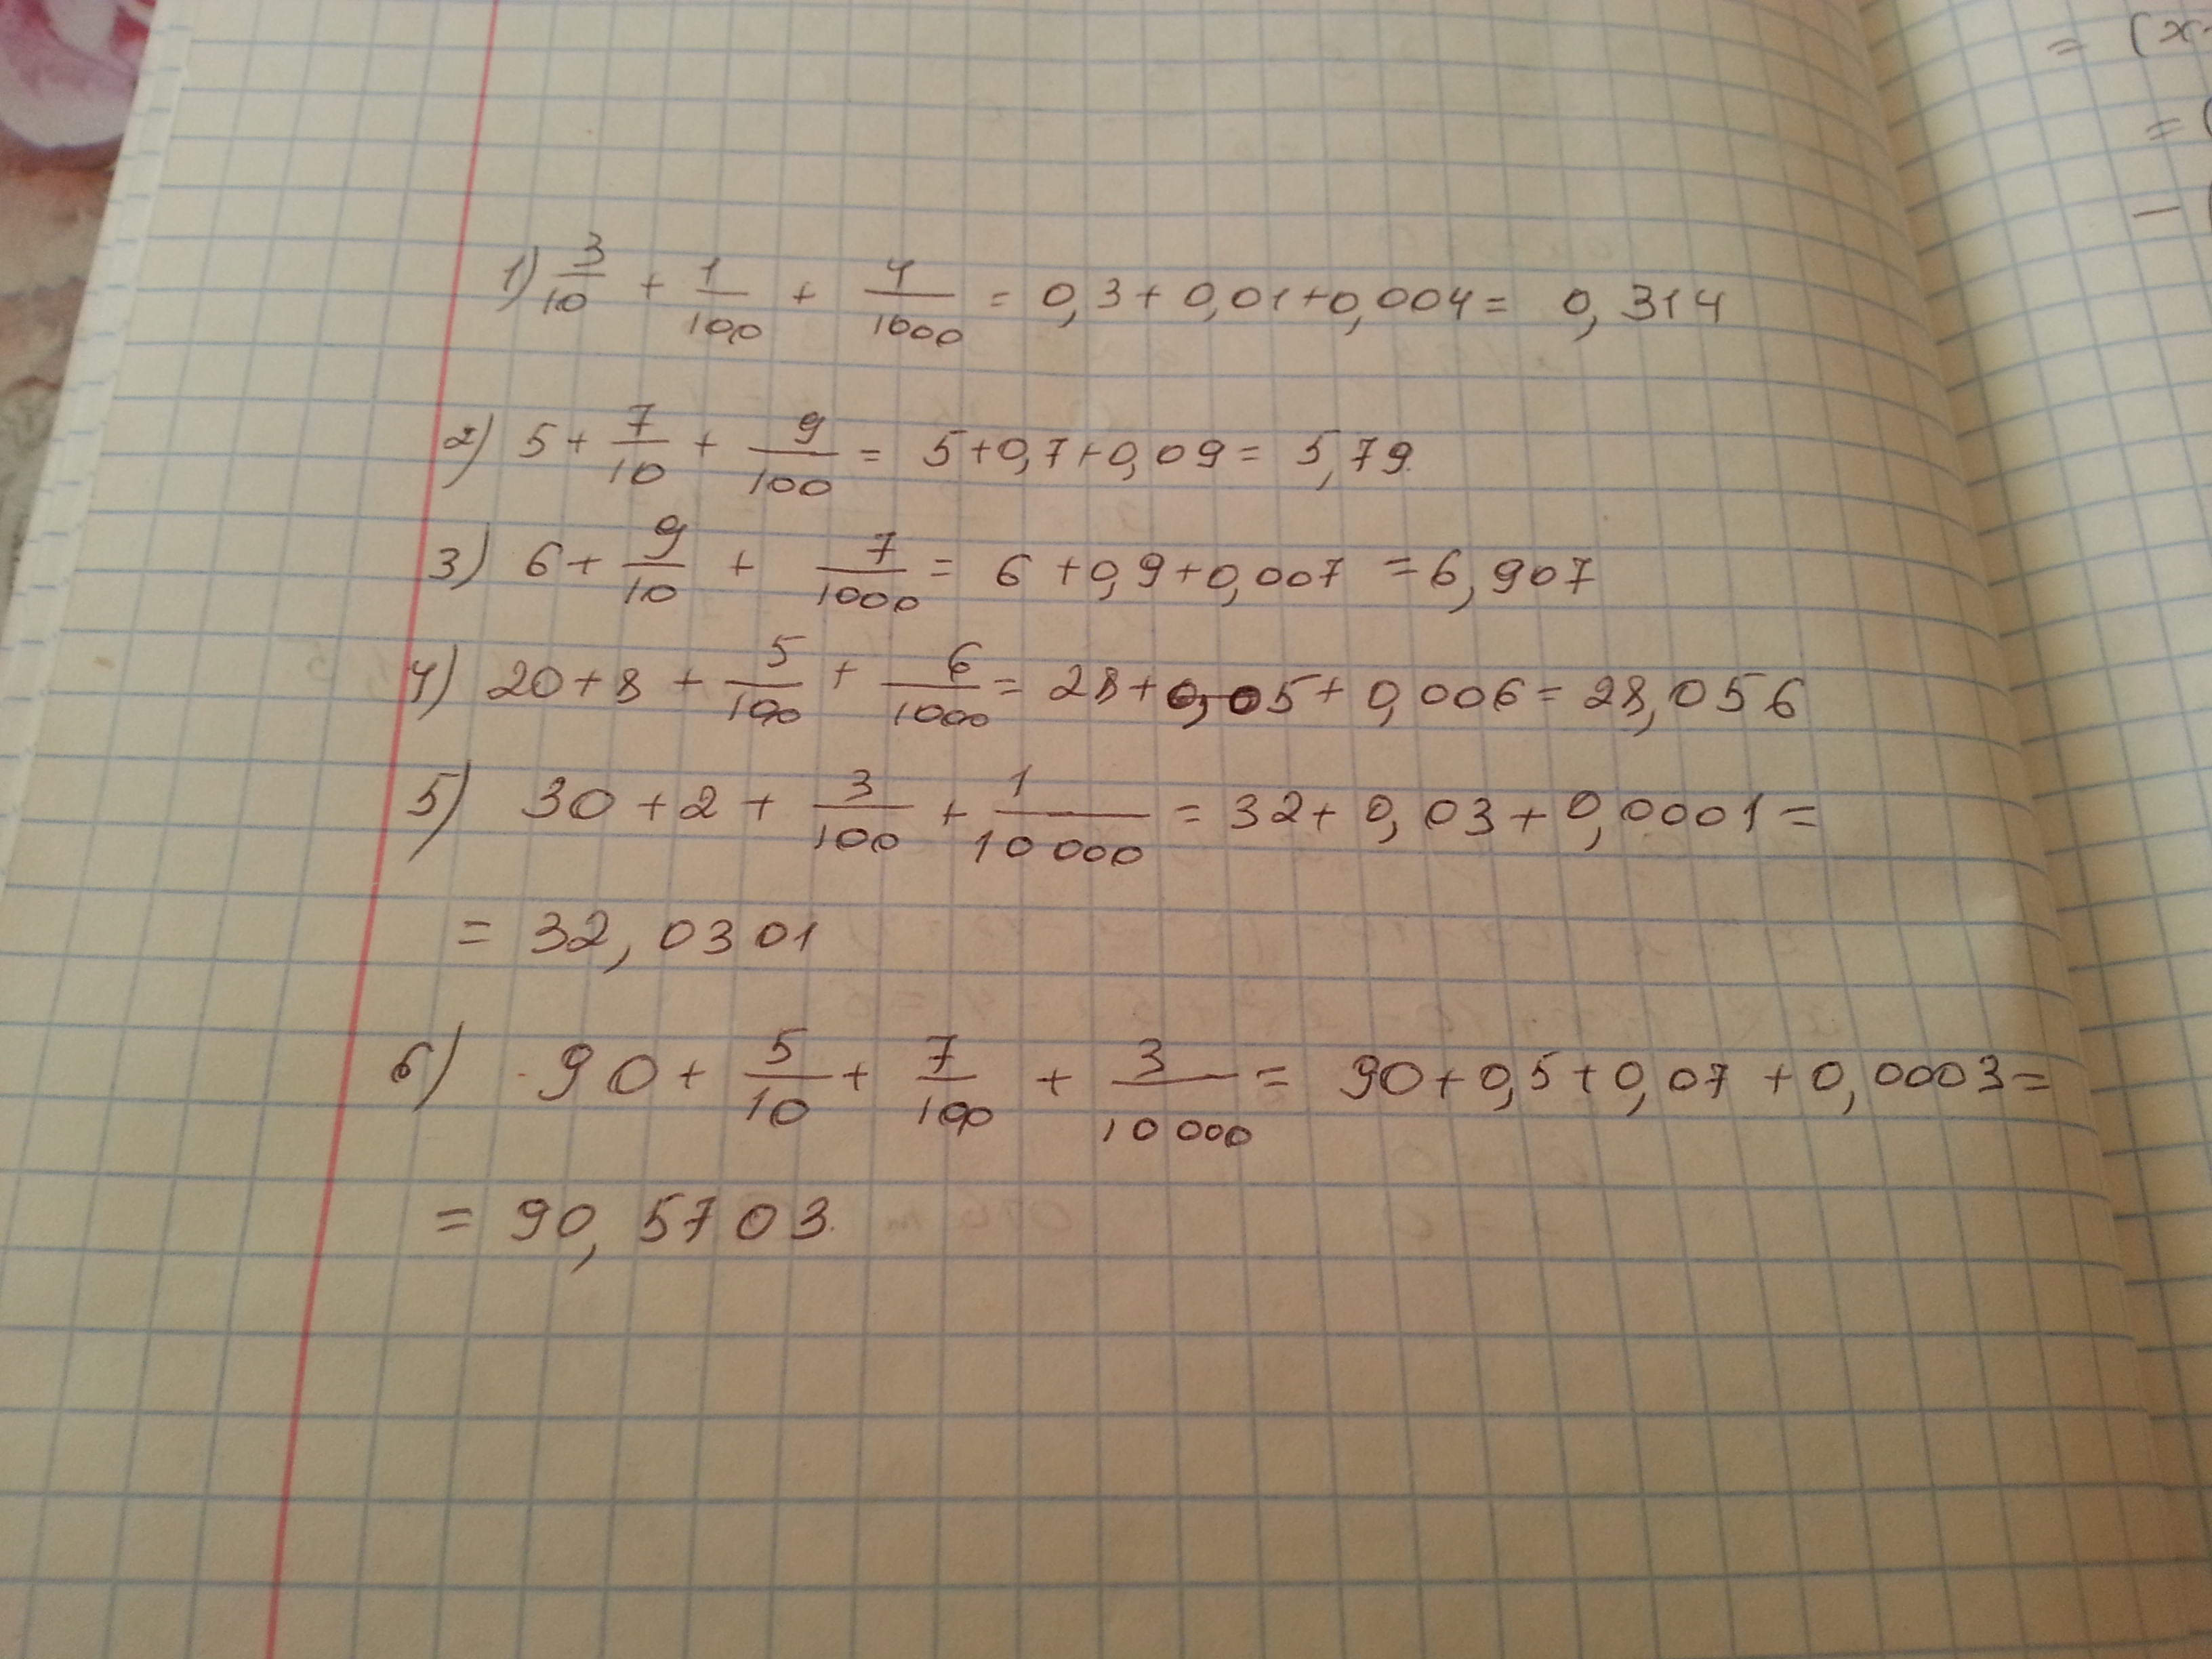 1) 3/10 + 1/100 + 4/1000 = 0,3 + 0,01 + 0,004 = 0,314
2) 5 + 7/10 + 9/100 = 5 + 0,7 + 0,09 = 5,79.
3) 6 + 9/10 + 7/1000 = 6 + 0,9 + 0,007 = 6,907
4) 20 + 8 + 5/100 + 6/1000 = 28 + 0,05 + 0,006 = 28,056
5) 30 + 2 + 3/100 + 1/10 000 = 32 + 0,03 + 0,0001 =
= 32,0301
6) 90 + 5/10 + 7/100 + 3/10 000 = 90 + 0,5 + 0,07 + 0,0003 =
= 90,5703.
= (x
= (
- (